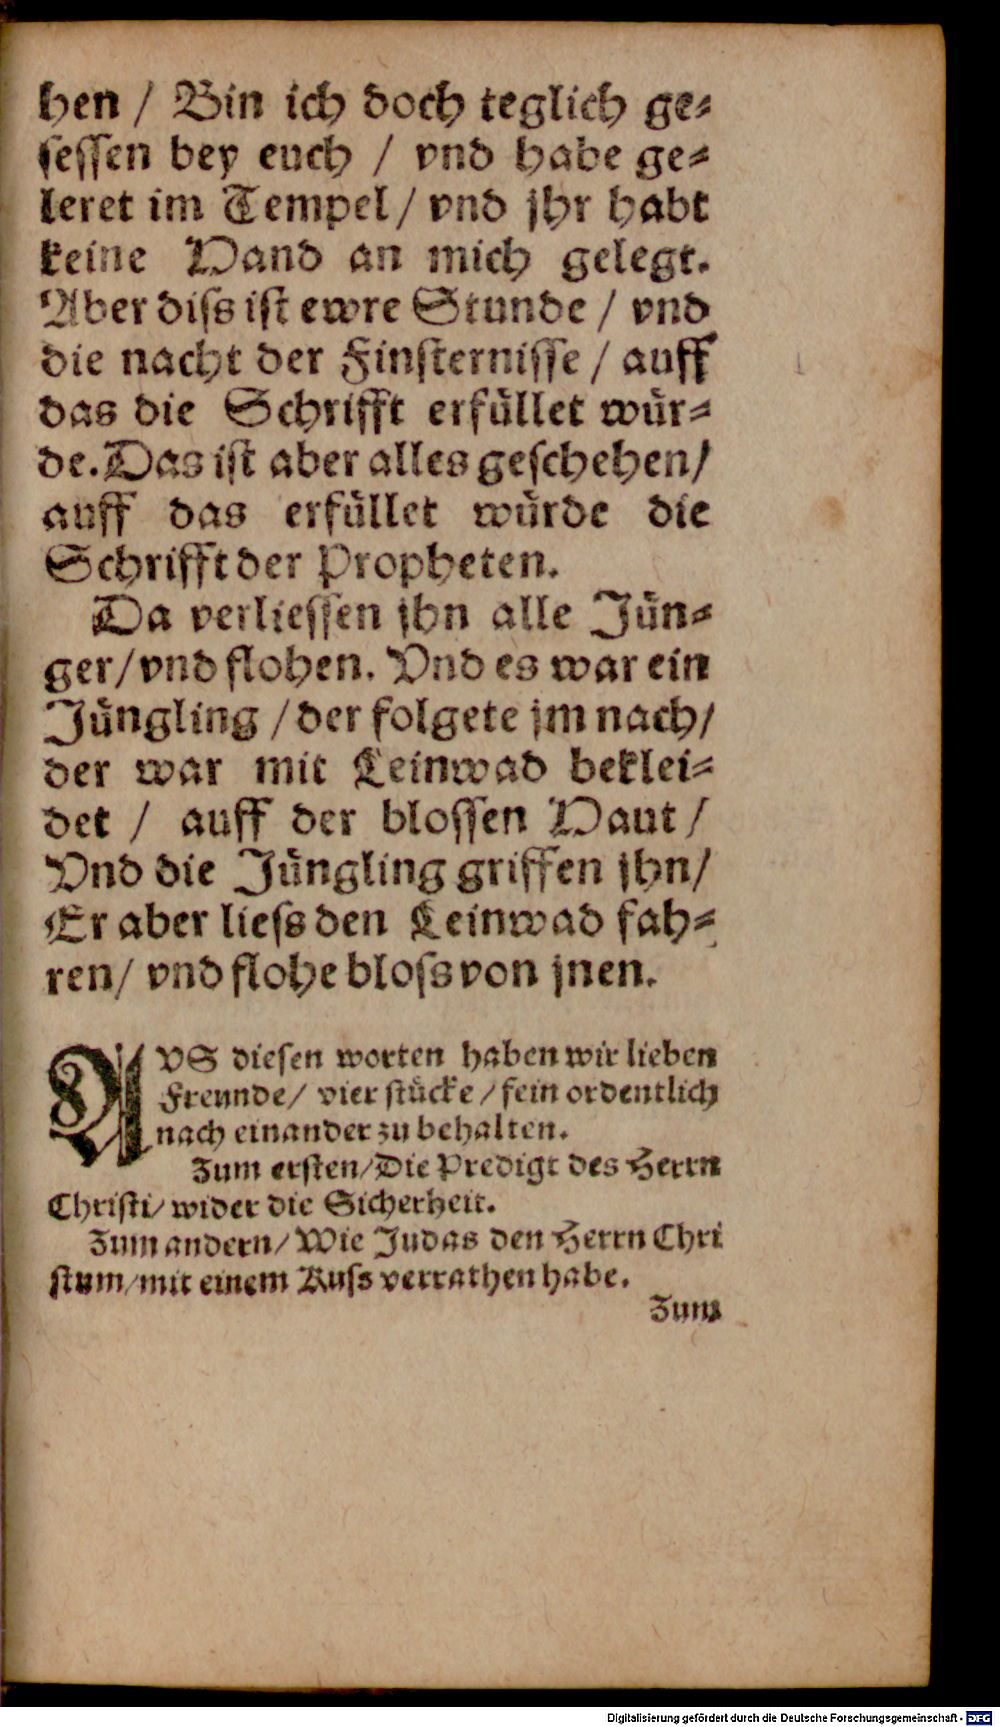 hen / Bin ich doch teglich ge⸗
ſeſſen bey euch / vnd habe ge⸗
leret im Tempel / vnd jhr habt
keine Hand an mich gelegt.
Aber diſs iſt ewre Stunde / vnd
die nacht der Finſterniſſe / auff
das die Schrifft erfuͤllet wuͤr⸗
de. Das iſt aber alles geſchehen /
auff das erfuͤllet wuͤrde die
Schrifft der Propheten.
Da verlieſſen jhn alle Juͤn⸗
ger / vnd flohen. Vnd es war ein
Juͤngling / der folgete jm nach /
der war mit Leinwad beklei⸗
det / auff der bloſſen Haut /
Vnd die Juͤngling griffen jhn /
Er aber lieſs den Leinwad fah⸗
ren / vnd flohe bloſs von jnen.
AVS dieſen worten haben wir lieben
Freunde / vier ſtuͤcke / fein ordentlich
nach einander zu behalten.
Zum erſten / Die Predigt des Herrn
Chriſti / wider die Sicherheit.
Zum andern / Wie Judas den Herrn Chri
ſtum / mit einem Kuſs verrathen habe.
Zum
Digitalisierung gefördert durch die Deutsche Forschungsgemeinschaft - DFG